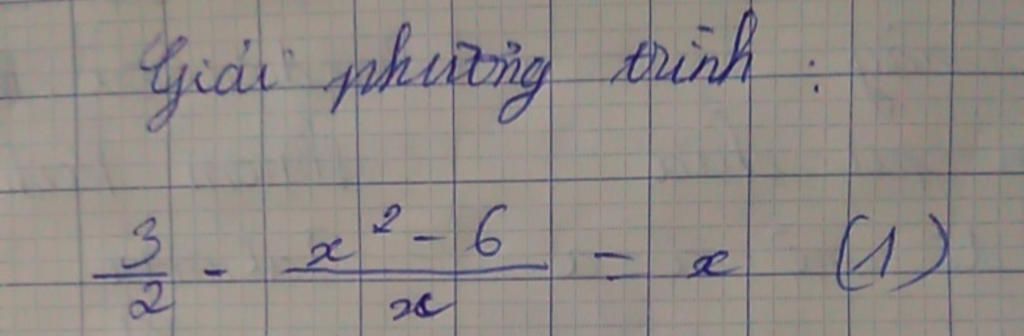 Giải phương trình :
3/2 - (x² - 6)/x = x (1)